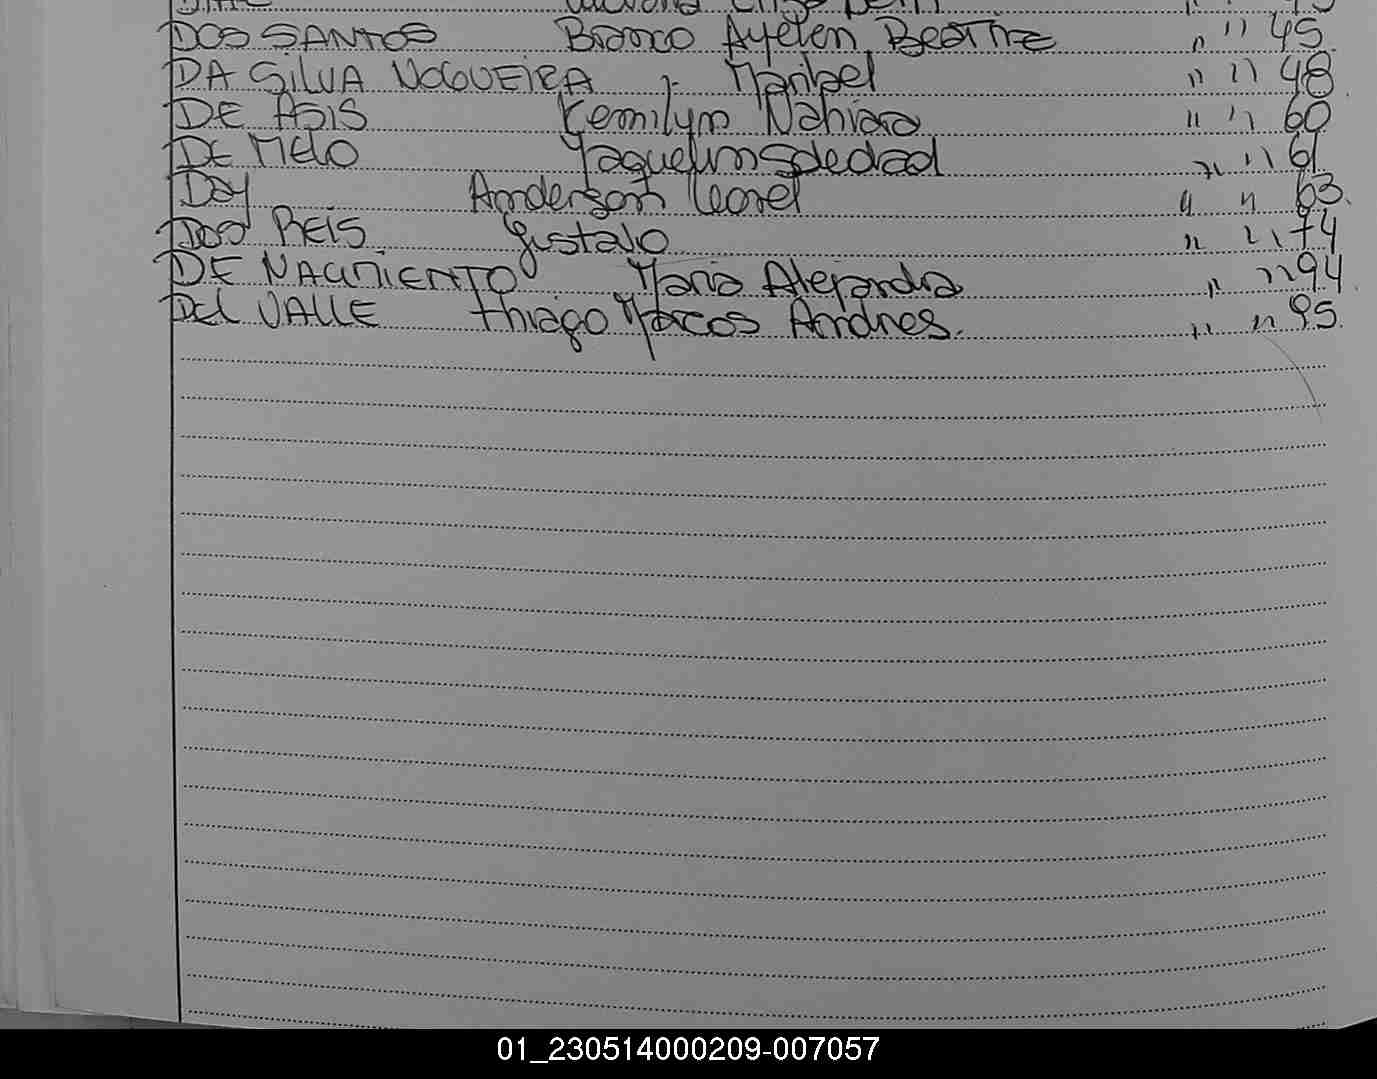 DOS SANTOS Bianco Ayelen Beatriz " " 45.
DA SILVA NOGUEIRA J. Maribel " " 48.
DE ASIS Kemilyn Nahiara " " 60
DE MELO Yaquelin Soledad " " 61
Day Anderson Leonel " " 63.
DOS REIS Gustavo " " 74
DE NACIMIENTO Maria Alejandra " " 94.
Del VALLE Thiago Marcos Andres. " " 95.
01_230514000209-007057